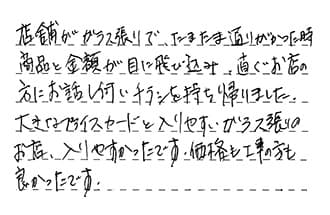 店舗がガラス張りで、たまたま通りがかった時
商品と金額が目に飛び込み、直ぐお店の
方にお話し伺いチラシを持ち帰りました。
大きなプライスカードと入りやすいガラス張りの
お店、入りやすかったです。価格も工事の方も
良かったです。